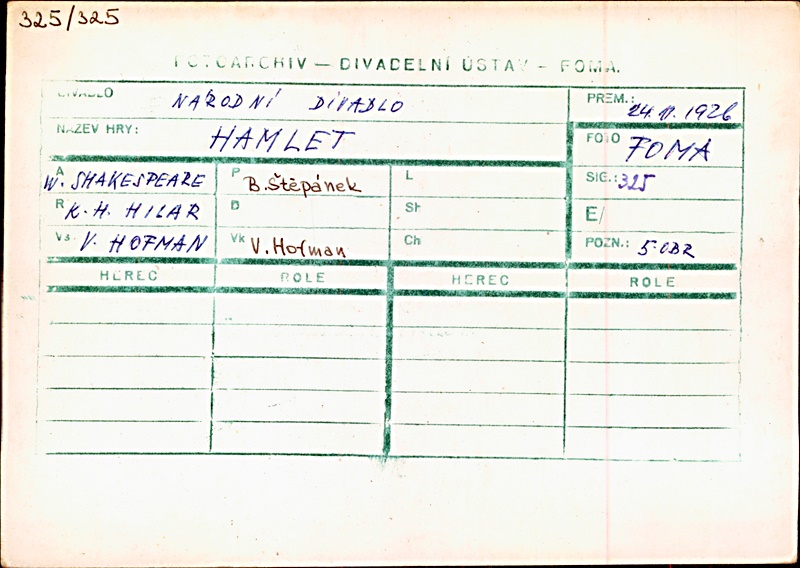 325/325
FOTOARCHIV — DIVADELNÍ ÚSTAV — FOMA.
DIVADLO NÁRODNÍ DIVADLO PREM.: 24.11.1926
NÁZEV HRY: HAMLET FOTO FOMA
A W. SHAKESPEARE P B.Štěpánek L SIG.: 325
R K. H. HILAR D Sh E/
Vs V. HOFMAN Vk V.Hofman Ch POZN.: 5 OBR
HEREC ROLE HEREC ROLE